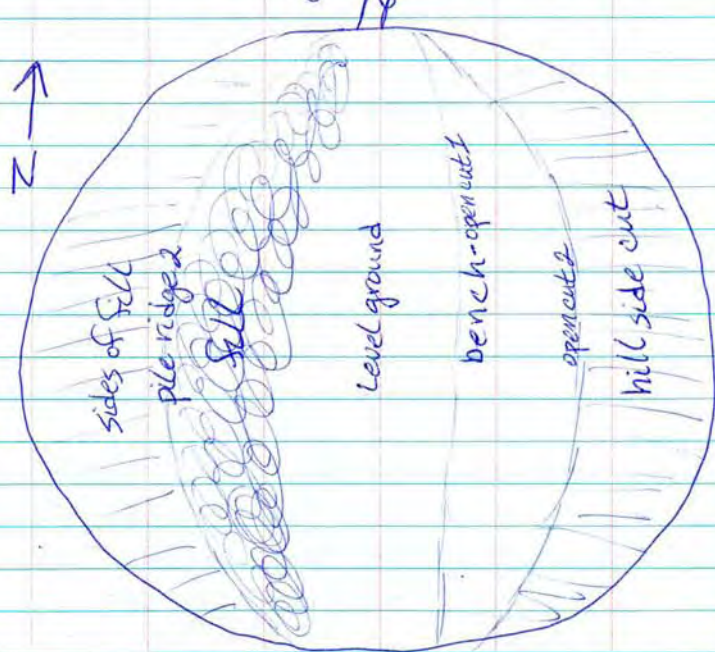 N
sides of fill
pile ridge 2
fill
Level ground
bench-open cut 1
open cut 2
hill side cut